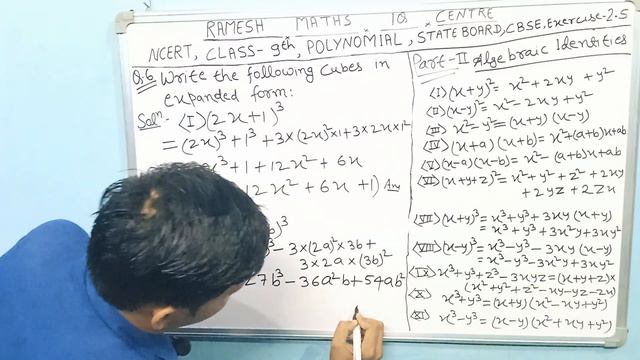 RAMESH MATHS IQ CENTRE
NCERT, CLASS-9th, POLYNOMIAL, STATE BOARD, CBSE, Exercise-2.5
Q.6 Write the following Cubes in
expanded form:
Solⁿ. <I> (2x+1)³
= (2x)³ + 1³ + 3×(2x)²×1 + 3×2x×1²
x³ + 1 + 12x² + 6x
12x² + 6x + 1) Ans
b)³
³ - 3×(2a)²×3b +
3×2a×(3b)²
27b³ - 36a²b + 54ab²
Part-II Algebraic Identities
<I> (x+y)² = x² + 2xy + y²
<II> (x-y)² = x² - 2xy + y²
<III> x² - y² = (x+y) (x-y)
<IV> (x+a) (x+b) = x² + (a+b)x + ab
<V> (x-a) (x-b) = x² - (a+b)x + ab
<VI> (x+y+z)² = x² + y² + z² + 2xy
+ 2yz + 2zx
<VII> (x+y)³ = x³ + y³ + 3xy (x+y)
= x³ + y³ + 3x²y + 3xy²
<VIII> (x-y)³ = x³ - y³ - 3xy (x-y)
= x³ - y³ - 3x²y + 3xy²
<IX> x³ + y³ + z³ - 3xyz = (x+y+z)×
(x² + y² + z² - xy - yz - zx)
<X> x³ + y³ = (x+y) (x² - xy + y²)
<XI> x³ - y³ = (x-y) (x² + xy + y²)